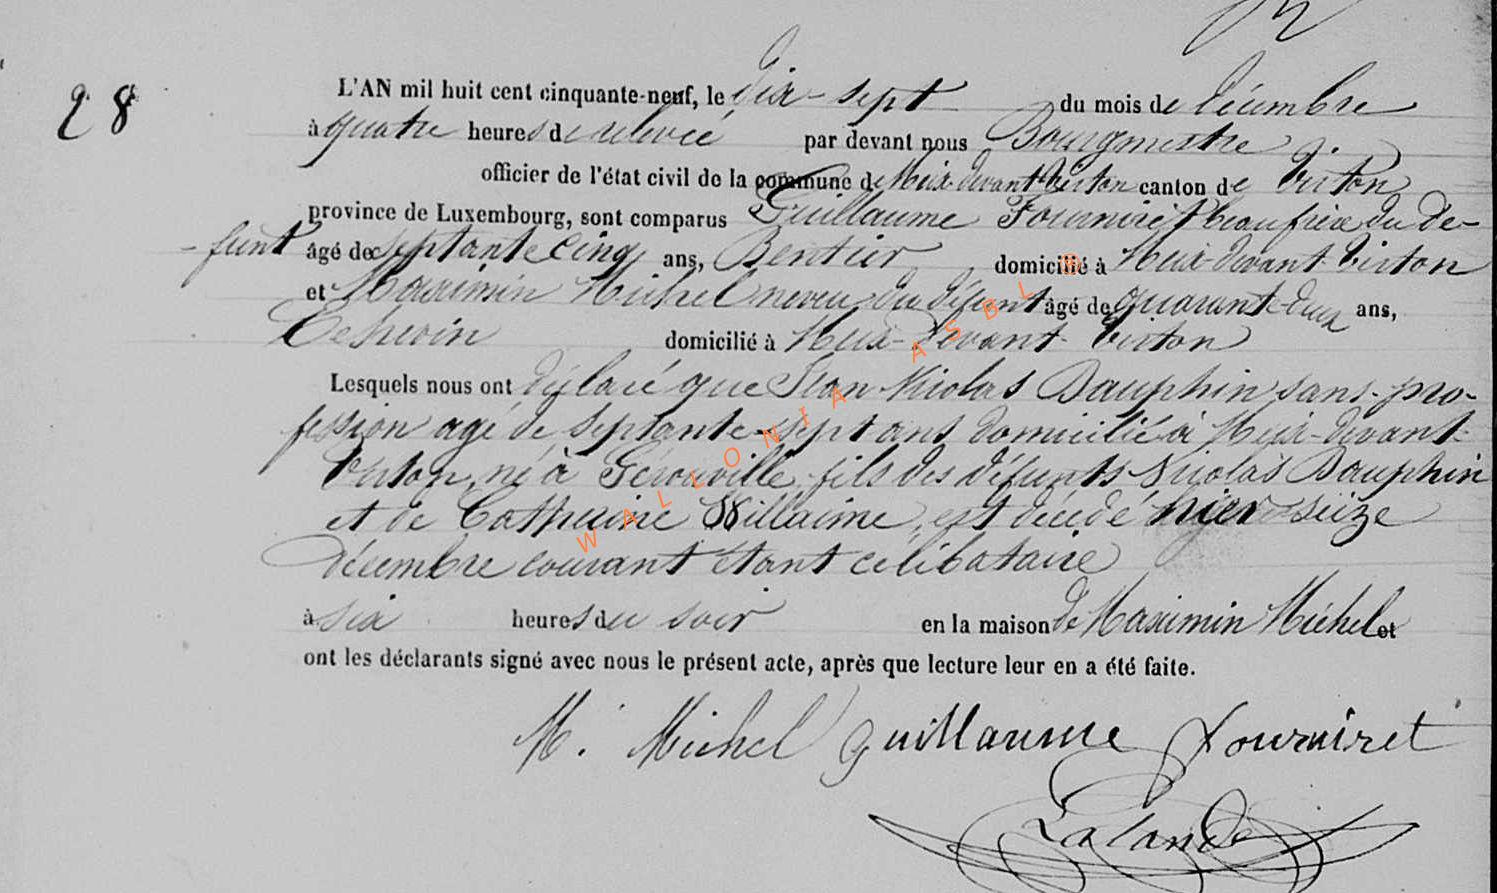 28
L'AN mil huit cent cinquante-neuf, le dix-sept du mois de décembre
à quatre heures de relevée par devant nous Bourgmestre
officier de l'état civil de la commune de Meix-devant-Virton canton de Virton
province de Luxembourg, sont comparus Guillaume Fourniret beaufrère du dé-
-funt âgé de septante cinq ans, Rentier domicilié à Meix-devant Virton
et Maximin Michel neveu du défunt âgé de quarant-deux ans,
domicilié à Meix-devant-Virton
Lesquels nous ont déclaré que Jean Nicolas Dauphin sans pro-
fession agé de septante-sept ans domicilié à Meix-devant-
Virton, né à Gérouville fils des défunts Nicolas Dauphin
et de Catherine Willaime, est décédé hier seize
décembre courant étant célibataire
à six heures du soir en la maison de Maximin Michel et
ont les déclarants signé avec nous le présent acte, après que lecture leur en a été faite.
M. Michel guillaume fourniret
Lalande
WALLONIA ASBL ®